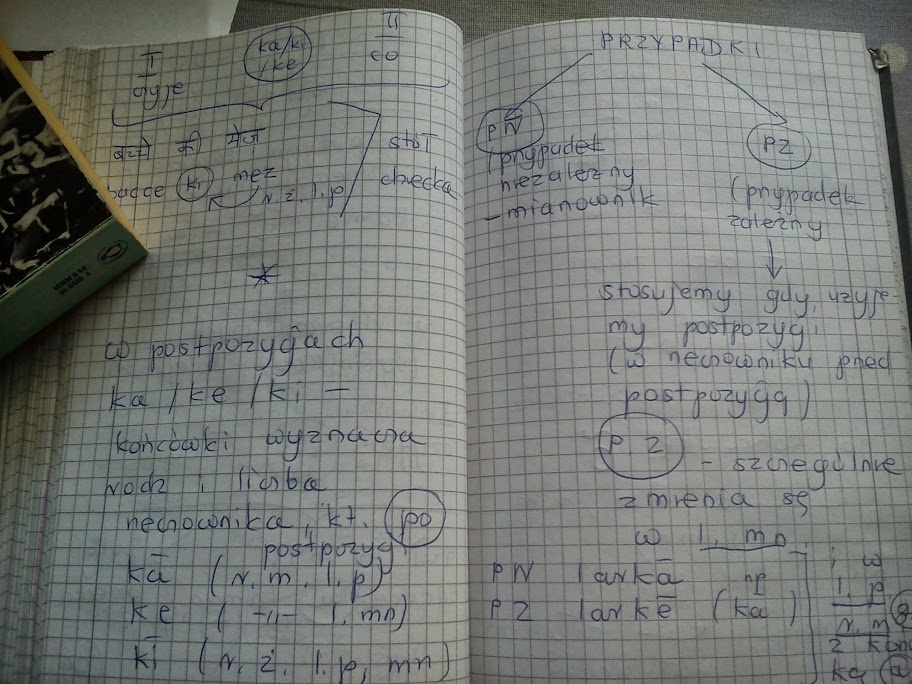 I
czyje
ka/ki
/ke
II
co
बच्चे की मेज़
bacce ki mez
r. ż. l. p.
stół
dziecka
*
w postpozycjach
ka / ke / ki –
końcówki wyznacza
rodz. i liczba
rzeczownika, kt. po
postpozycji
kā (r. m. l. p)
ke ( -"- l. mn)
kī (r. ż. l. p, mn)
PRZYPADKI
PN
(przypadek
niezależny
– mianownik
PZ
(przypadek
zależny
stosujemy gdy użyje-
my postpozycji
(w rzeczowniku przed
postpozycją)
P. Z
– szczególnie
zmienia się
w l. mn.
PN larkā np
PZ larkē (ka)
i w
l. p.
r. m
z koń
ka a